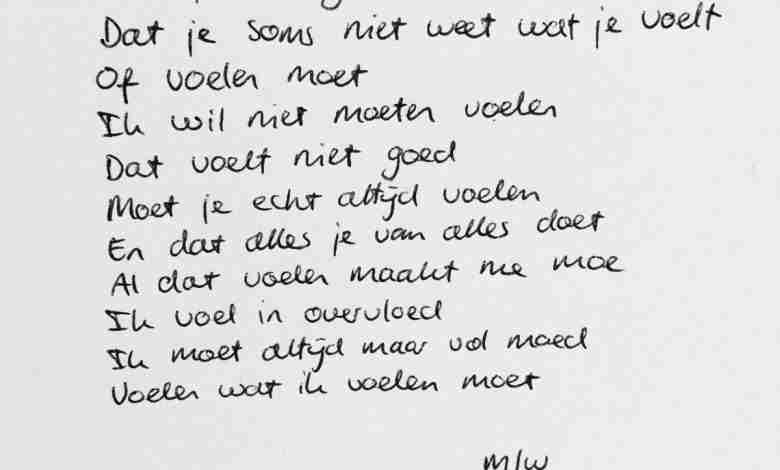 Dat je soms niet weet wat je voelt
Of voelen moet
Ik wil niet moeten voelen
Dat voelt niet goed
Moet je echt altijd voelen
En dat alles je van alles doet
Al dat voelen maakt me moe
Ik voel in overvloed
Ik moet altijd maar vol moed
Voelen wat ik voelen moet
M/W